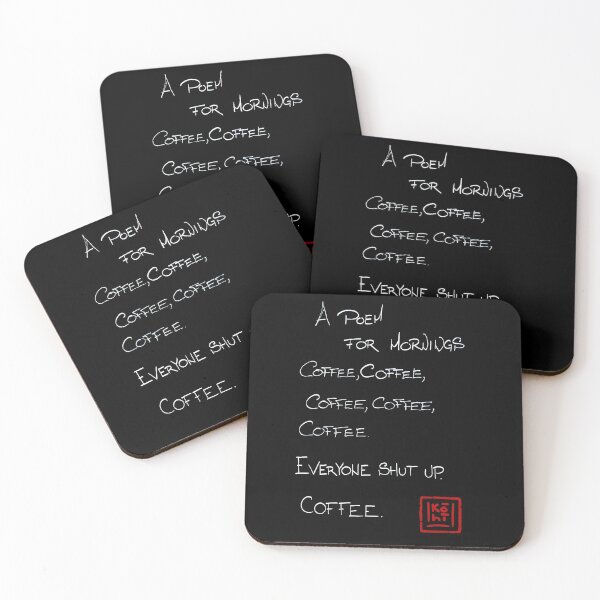 A POEM
FOR MORNINGS
COFFEE, COFFEE,
COFFEE, COFFEE,
A POEM
FOR MORNINGS
COFFEE, COFFEE,
COFFEE, COFFEE,
COFFEE.
EVERYONE SHUT UP
A POEM
FOR MORNINGS
COFFEE, COFFEE,
COFFEE, COFFEE,
COFFEE.
EVERYONE SHUT
COFFEE.
A POEM
FOR MORNINGS
COFFEE, COFFEE,
COFFEE, COFFEE,
COFFEE.
EVERYONE SHUT UP.
COFFEE.